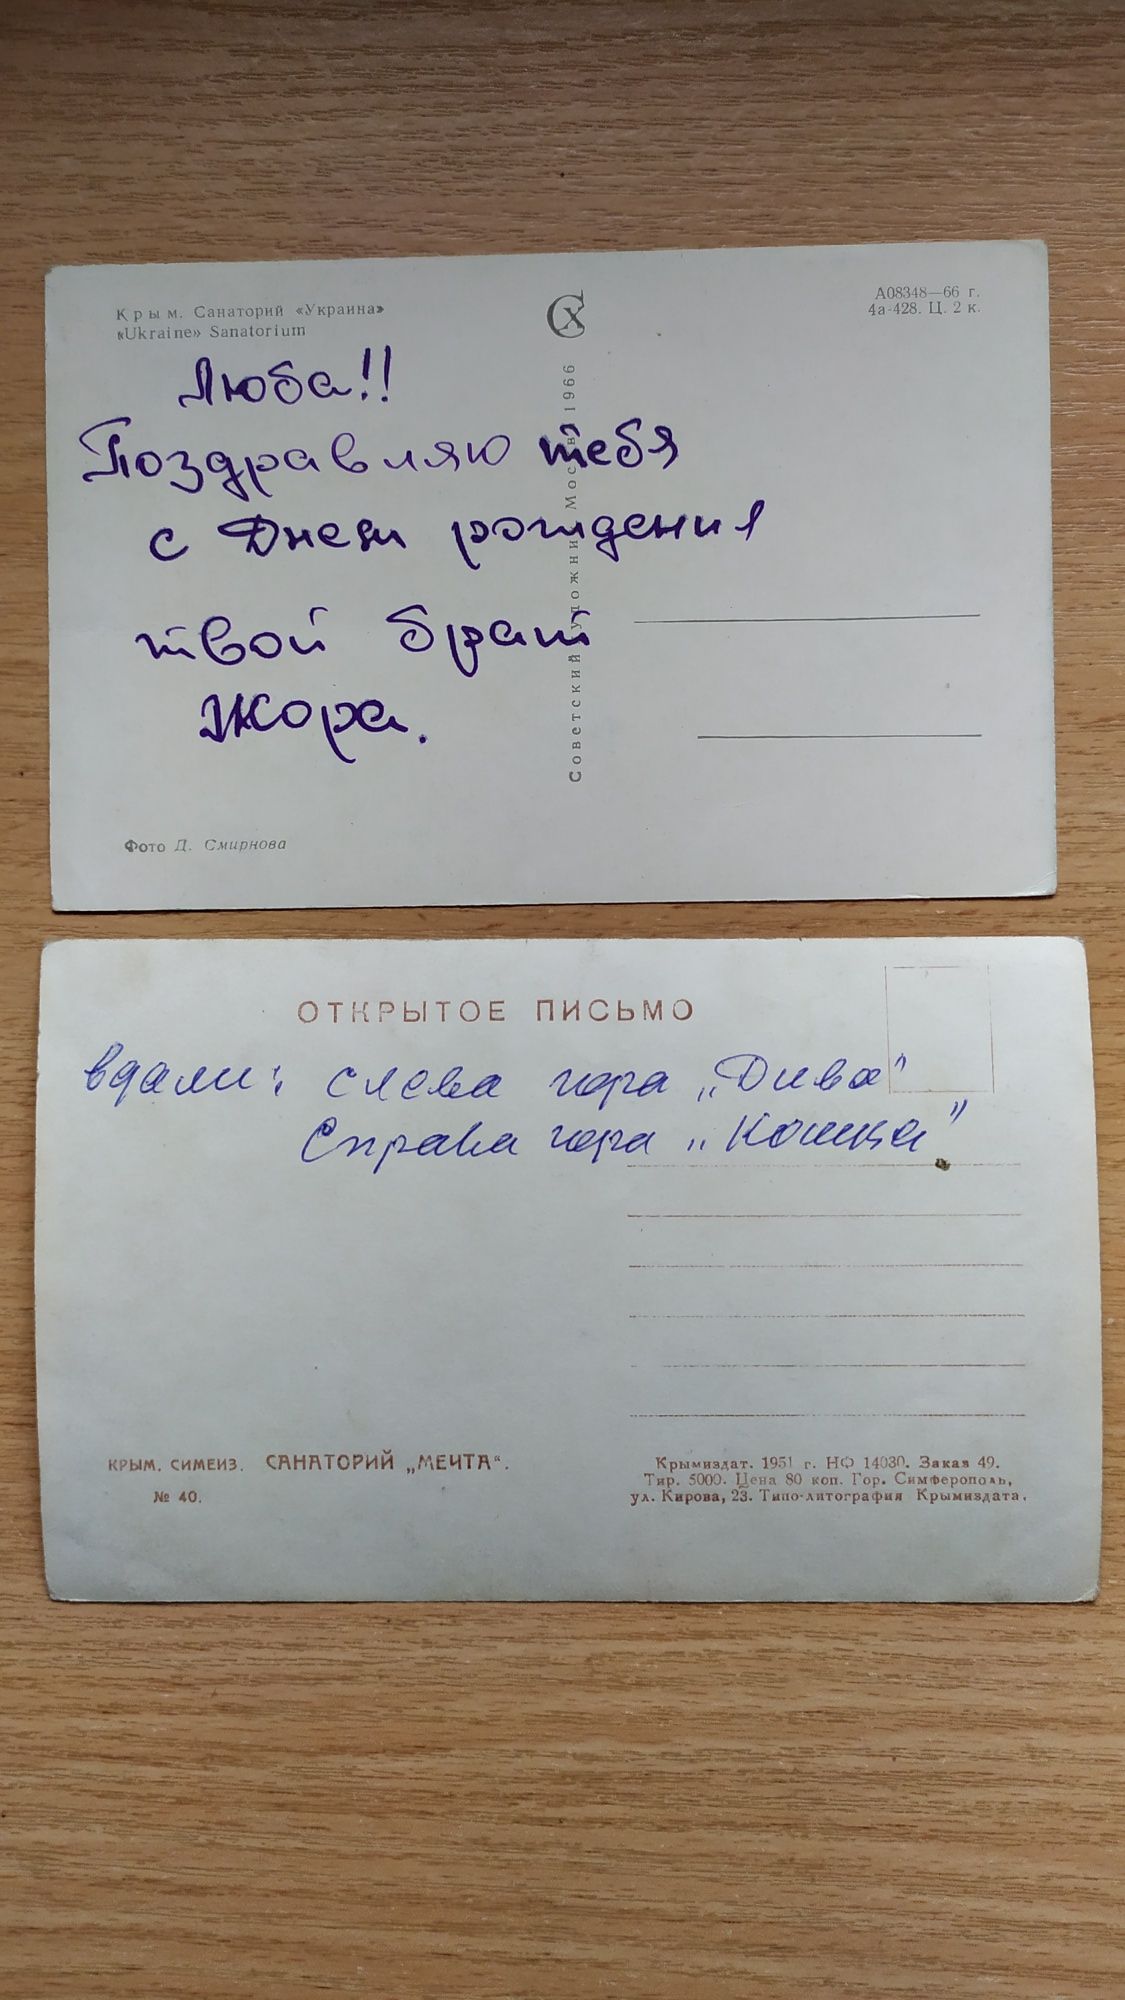 Крым. Санаторий «Украина»
«Ukraine» Sanatorium
А08348—66 г.
4а-428. Ц. 2 к.
Люба!!
Поздравляю тебя
с Днем рождения
твой брат
Жора.
Советский художник. Москва. 1966
Фото Д. Смирнова
ОТКРЫТОЕ ПИСЬМО
вдали: слева гора „Дива"
Справа гора „Кошка"
КРЫМ. СИМЕИЗ. САНАТОРИЙ „МЕЧТА“.
№ 40.
Крымиздат. 1951 г. НФ 14030. Заказ 49.
Тир. 5000. Цена 80 коп. Гор. Симферополь,
ул. Кирова, 23. Типо-литография Крымиздата.